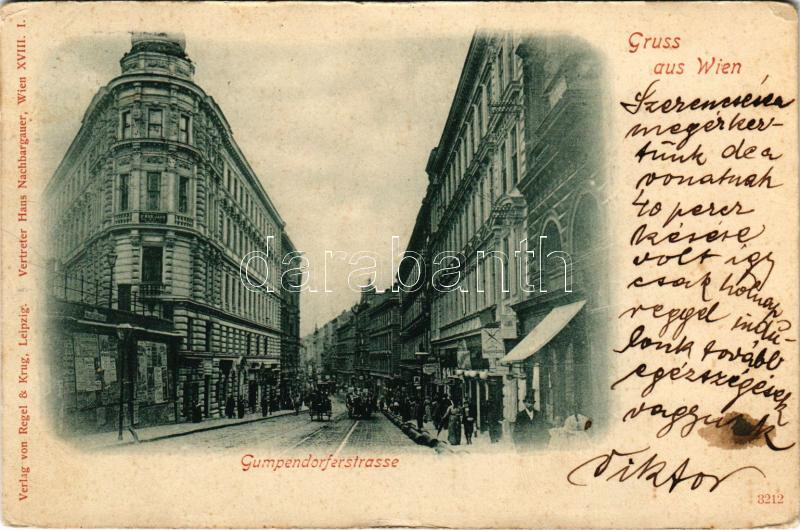 Verlag von Regel & Krug, Leipzig. Vertreter Hans Nachbargauer, Wien XVIII. I.
Gruss
aus Wien
Szerencsésen
megérkez-
tünk de a
vonatnak
40 percz
késése
volt így
csak holnap
reggel indu-
lunk tovább
egészségesek
vagyunk
Viktor
darabanth
Gumpendorferstrasse
3212